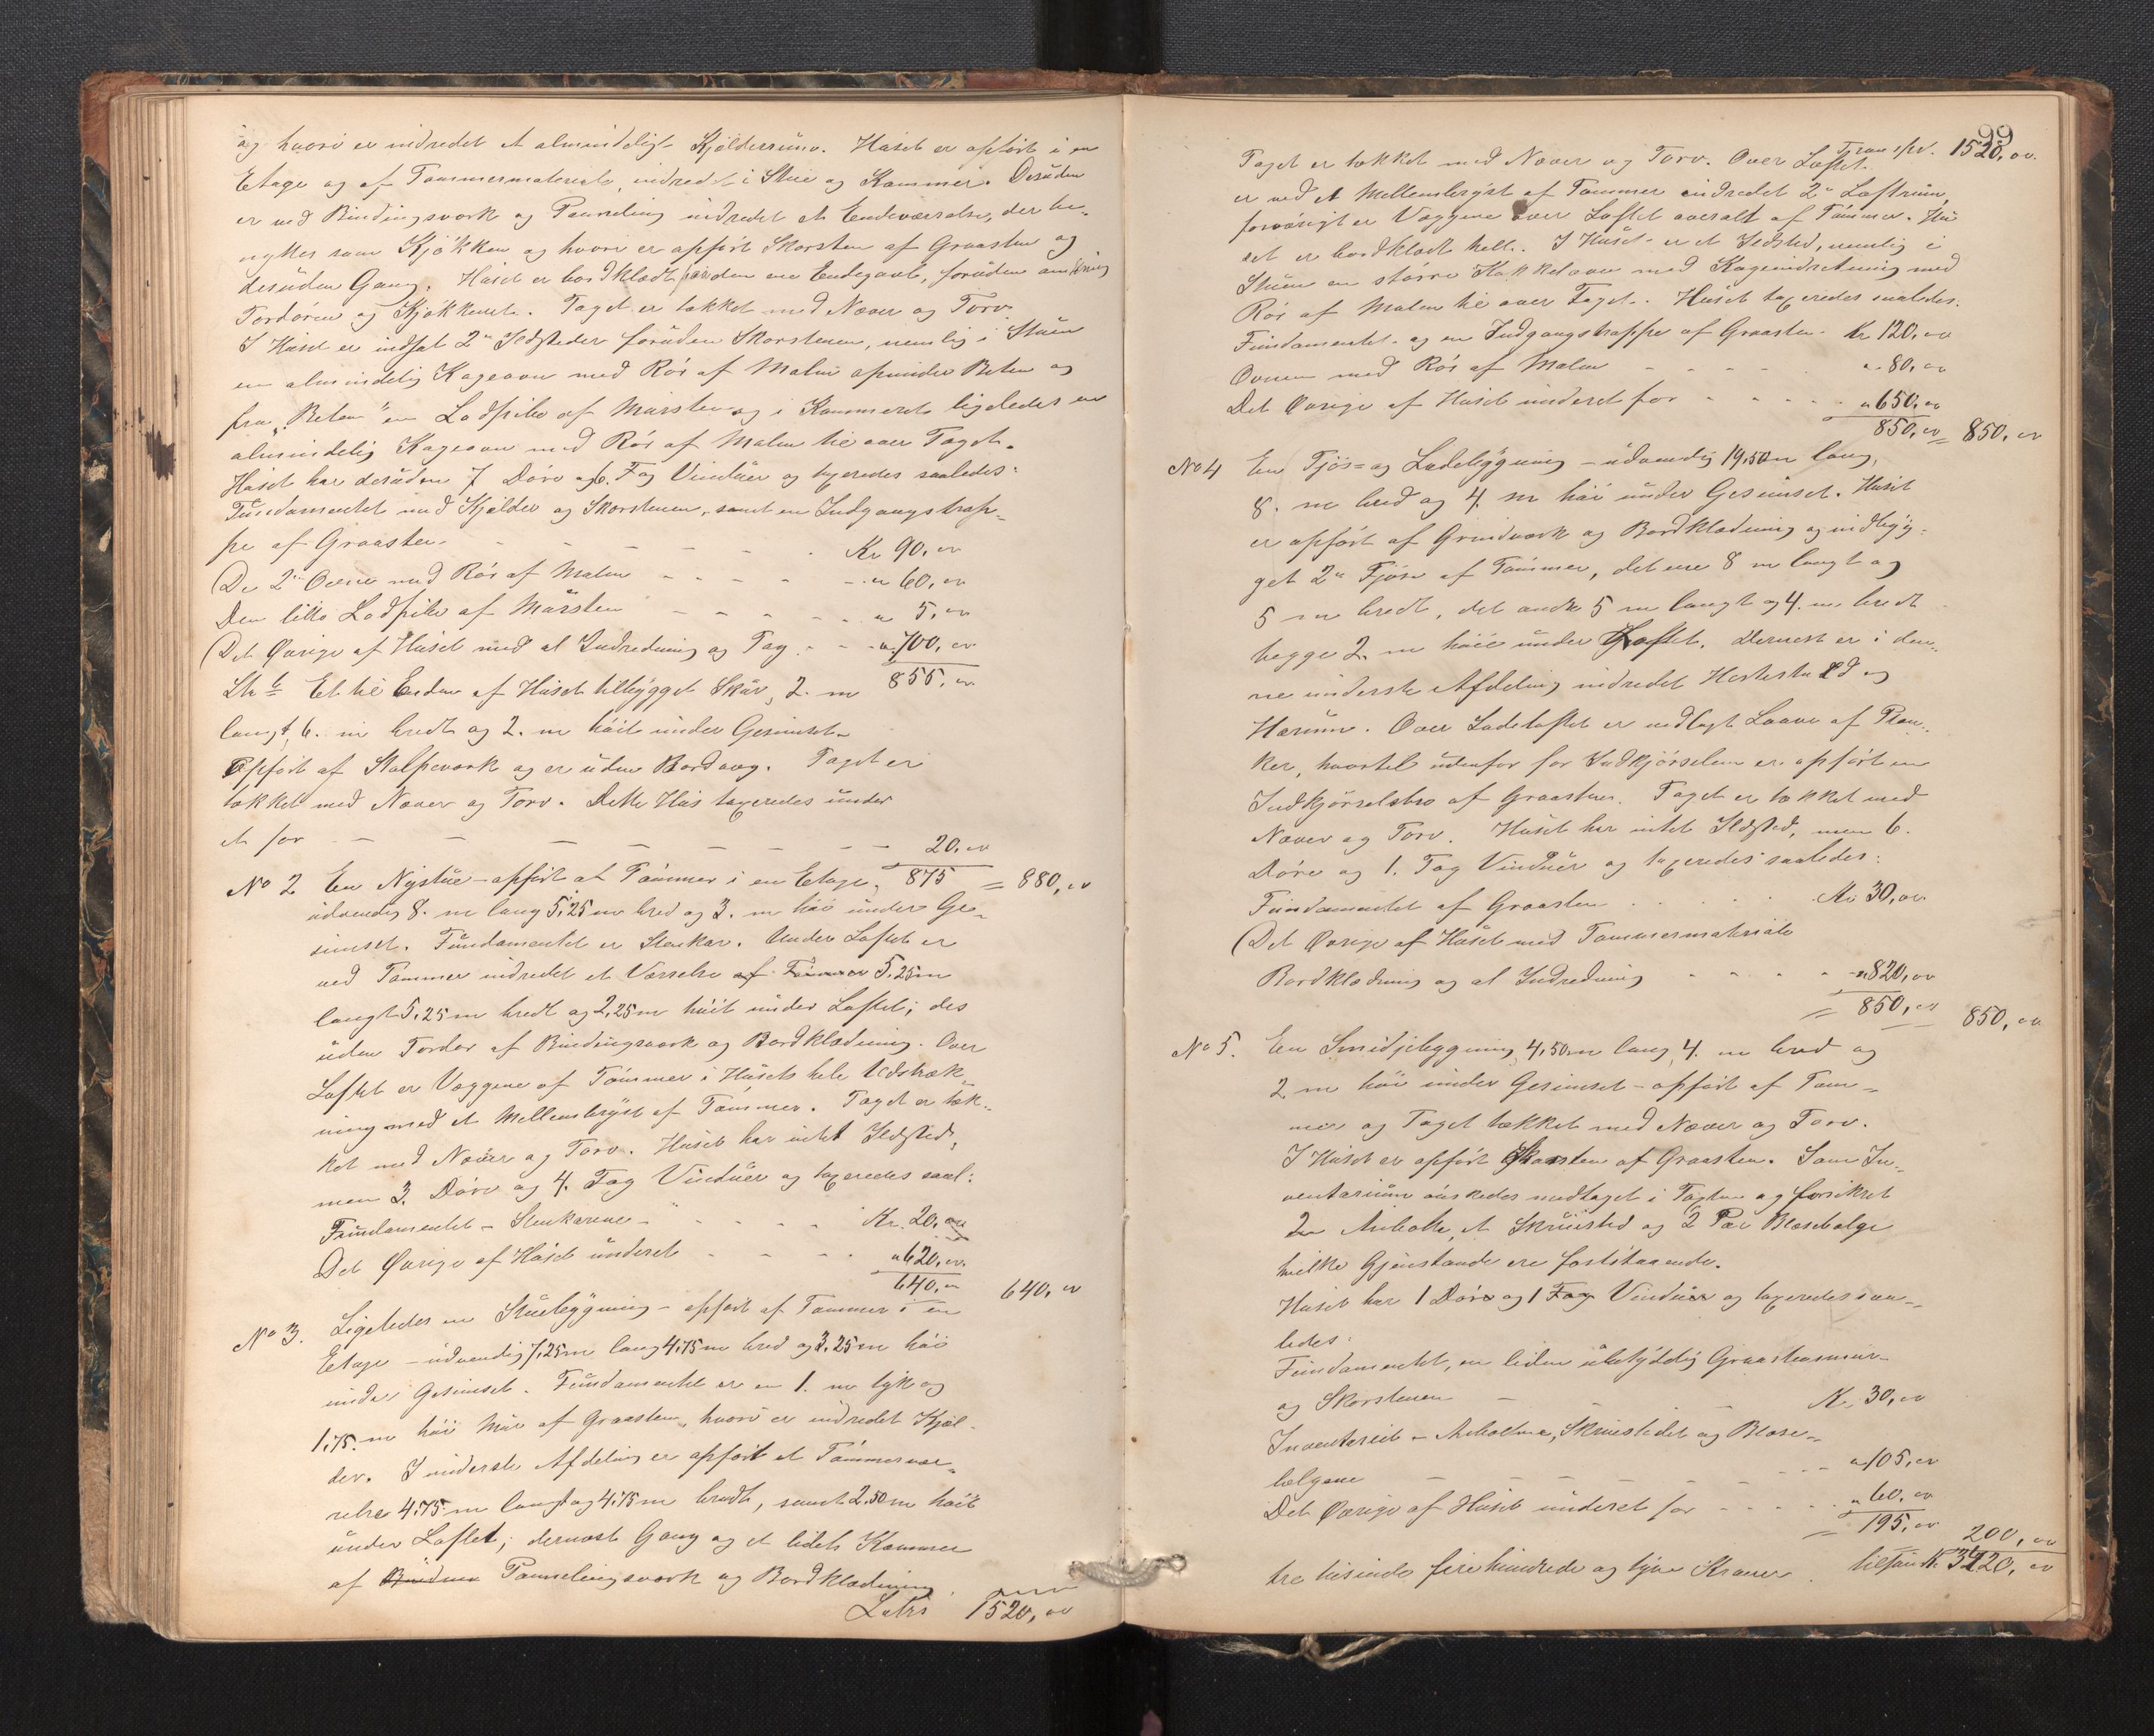 og hvori er indredet et almindeligt Kjælderrum. Huset er opført i en
Etage og af Tømmermateriale, indredet i Stue og Kammer. Desuden
er ved Bindingsværk og Panneling indredet et Endeværelse, der be-
nyttes som Kjøkken og hvori er opført Skorsten af Graasten og
desuden Gang. Huset er bordklædt paa den ene Endegavl, foruden omkring
Fordøren og Kjøkkenet. Taget er tækket med Næver og Torv.
I Huset er indsat 2de Ildsteder foruden Skorstenen, nemlig i Stuen
en almindelig Kageovn med Rör af Malm opunder Beten og
fra "Beten" en Ladpibe af Mursten og i Kammeret ligeledes en
almindelig Kageovn med Rör af Malm til over Taget.
Huset har desuden 7 Döre og 6. Fag Vinduer og taxeredes saaledes:
Fundamentet med Kjelder og Skorstenen, samt en Indgangstrap-
pe af Graasten - - - - - Kr 90,00
De 2de Ovne med Rör af Malm - - - - " 60,00
Den lille Ladpibe af Mursten - - - - " 5,00
Det Øvrige af Huset med al Indredning og Tag - - " 700,00
Litr b Et til Enden af Huset tilbygget Skur, 2. m 855,00
langt, 6. m bredt og 2. m höit under Gesimset -
Opført af Stolpeværk og er uden Bordvæg. Taget er
tækket med Næver og Torv. Dette Hus taxeredes under
et for - - - - - - - 20,00
No 2 En Nystue - opfört af Tömmer i en Etage, 875 = 880,00
udvendig 8. m lang 5,25 m bred og 3. m höi under Ge-
simset. Fundamentet er Stenkar. Under Loftet er
ved Tømmer indredet et Værelse af Tömmer 5,25 m
langt 5,25 m bredt og 2,25 m höit under Loftet; des
uden Fordör af Bindingsværk og Bordklædning. Over
Loftet er Væggene af Tömmer i Husets hele Udstræk
ning med et Mellembryst af Tømmer. Taget er tæk-
ket med Næver og Torv. Huset har intet Ildsted,
men 3. Döre og 4. Fag Vinduer og taxeredes saal:
Fundamentet - Stenkarene - - - - Kr. 20,00
Det Øvrige af Huset underet - - - " 620,00
640,00 640,00
No 3. Ligeledes en Stuebygning - opfört af Tømmer i en
Etage - udvendig 7,25 m lang 4,75 m bred og 3,25 m höi
under Gesimset. Fundamentet er en 1. m tyk og
1,75. m höi Mur af Graasten, hvori er indredet Kjæl-
der. I underste Afdeling er opfört et Tömmervæ-
relse 4,75 m langt og 4,75 m bredt, samt 2,50 m höit
under Loftet; dernæst Gang og et lidet Kammer
af Pannelingsværk og Bordklædning.
Latus 1520,00
99
Transpt. 1520,00.
Taget er tækket med Næver og Torv. Over Loftet
er ved et Mellembryst af Tømmer indredet 2de Loftrum,
forövrigt er Væggene over Loftet overalt af Tömmer. Hu
set er bordklædt helt. I Huset er et Ildsted, nemlig i
Stuen en större Kakkelovn med Kageindretning med
Rör af Malm til over Taget. Huset taxeredes saaledes.
Fundamentet og en Indgangstrappe af Graasten - Kr 120,00
Ovnen med Rör af Malm - - - - " 80,00
Det Øvrige af Huset underet for - - - - " 650,00
850,00 = 850,00
No 4 En Fjös- og Ladebygning - udvendig 19,50 m lang,
8. m bred og 4. m höi under Gesimset. Huset
er opfört af Grindværk og Bordklædning og indbyg-
get 2de Fjöse af Tömmer, det ene 8 m langt og
5 m bredt, det andet 5 m langt og 4. m bredt
begge 2. m höie under Loftet. Dernest er i den-
ne underste Afdeling indredet Hestestald og
Hørum. Over Ladeloftet er nedlagt Laave af Plan-
ker, hvortil udenfor for Indkjörselen er opfört en
Indkjörselsbro af Graasten. Taget er tækket med
Næver og Torv. Huset har intet Ildsted, men 6.
Döre og 1. Fag Vinduer og taxeredes saaledes:
Fundamentet af Graasten - - - - Kr 30,00
Det Øvrige af Huset med Tømmermateriale
Bordklædning og al Indredning - - - - " 820,00
= 850,00 850,00
No 5. En Smidjebygning 4,50 m lang, 4. m bred og
2 m höi under Gesimset - opfört af Töm-
mer og Taget tækket med Næver og Torv.
I Huset er opfört Skorsten af Graasten. Som In-
ventarium önskedes medtaget i Taxten og forsikret
2de Ambolte, et Skruested og 2 Par Blæsebelge
hvilke Gjenstande ere faststaaende.
Huset har 1 Dör og 1 Fag Vinduer og taxeredes saa-
ledes:
Fundamentet, en liden ubetydelig Graastensmur
og Skorstenen - - - Kr. 30,00
Inventariet - Amboltene, Skruestedet og Blæse-
belgene - - - - - " 105,00
Det Øvrige af Huset underet for - - - - " 60,00
= 195,00 200,00
tre tusinde fire hundrede og tyve Kroner. tilsam. Kr 3420,00